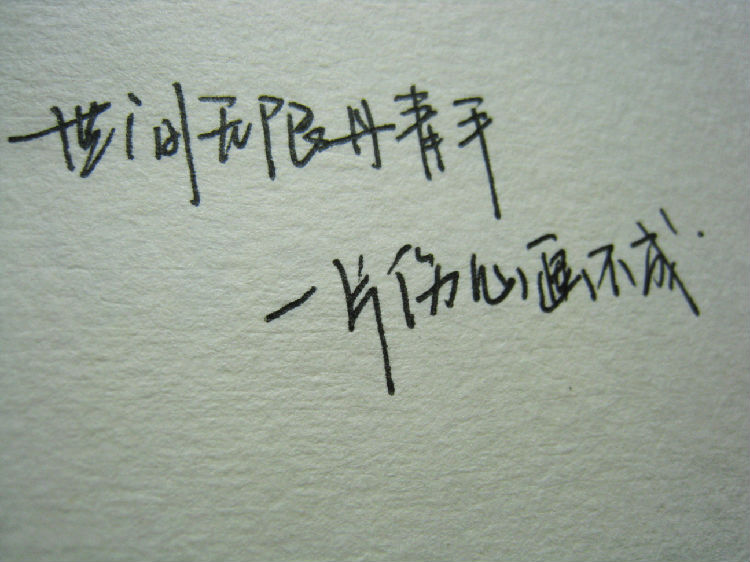 世间无限丹青手
一片伤心画不成